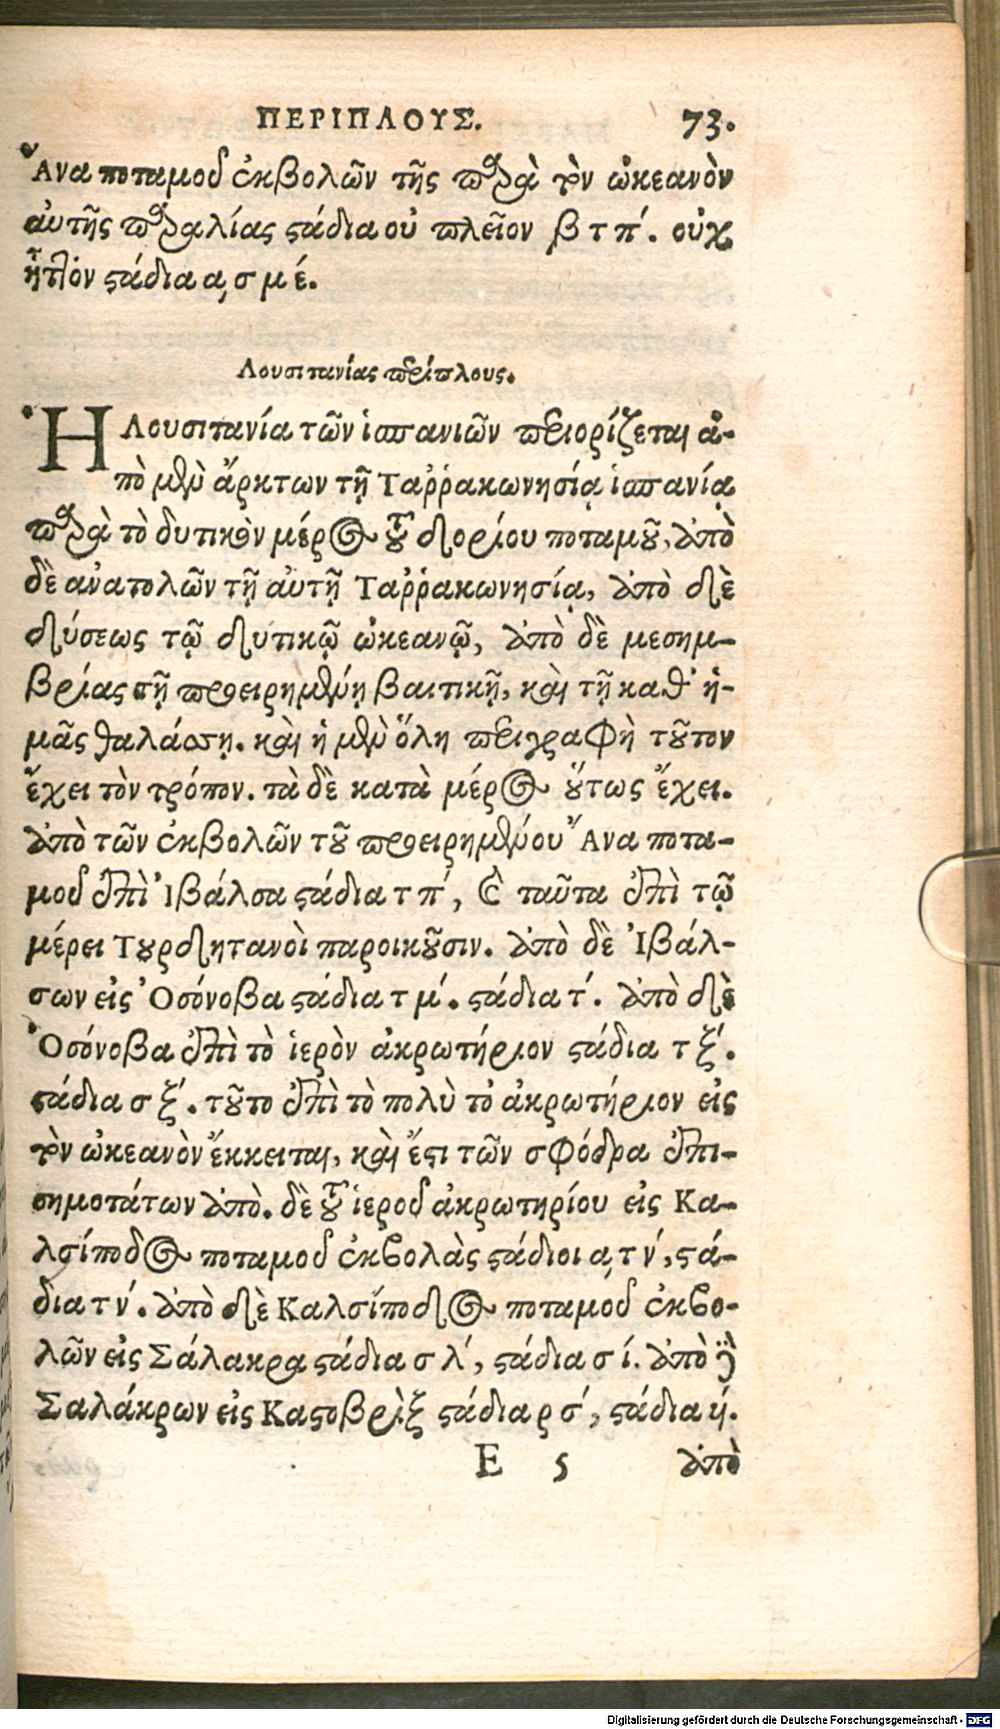 ΠΕΡΙΠΛΟΥΣ. 73.
Ἄνα ποταμοῦ ἐκβολῶν τῆς παρὰ τὸν ὠκεανὸν
αὐτῆς παραλίας στάδια οὐ πλεῖον β τ π΄. οὐχ
ἧττον στάδια α, σ μ έ.
Λουσιτανίας περίπλους.
Ἡ Λουσιτανία τῶν ἱσπανιῶν περιορίζεται ἀ-
πὸ μὲν ἄρκτων τῇ Ταῤῥακωνησίᾳ ἱσπανίᾳ
παρὰ τὸ δυτικὸν μέρος τοῦ δορίου ποταμοῦ, ἀπὸ
δὲ ἀνατολῶν τῇ αὐτῇ Ταῤῥακωνησίᾳ, ἀπὸ δὲ
δύσεως τῷ δυτικῷ ὠκεανῷ, ἀπὸ δὲ μεσημ-
βρίας τῇ προειρημένῃ βαιτικῇ, καὶ τῇ καθ' ἡ-
μᾶς θαλάσσῃ. καὶ ἡ μὲν ὅλη περιγραφὴ τοῦτον
ἔχει τὸν τρόπον. τὰ δὲ κατὰ μέρος οὕτως ἔχει.
ἀπὸ τῶν ἐκβολῶν τοῦ προειρημένου Ἄνα ποτα-
μοῦ ἐπὶ Ἰβάλσα στάδια τ π΄, καὶ ταῦτα ἐπὶ τῷ
μέρει Τουρδητανοὶ παροικοῦσιν. ἀπὸ δὲ Ἰβάλ-
σων εἰς Ὀσόνοβα στάδια τ μ΄. στάδια τ΄. ἀπὸ δὲ
Ὀσόνοβα ἐπὶ τὸ ἱερὸν ἀκρωτήριον στάδια τ ξ΄.
στάδια σ ξ΄. τοῦτο ἐπὶ τὸ πολὺ τὸ ἀκρωτήριον εἰς
τὸν ὠκεανὸν ἔκκειται, καὶ ἔστι τῶν σφόδρα ἐπι-
σημοτάτων ἀπὸ. δὲ τοῦ ἱεροῦ ἀκρωτηρίου εἰς Κα-
λσίποδος ποταμοῦ ἐκβολὰς στάδιοι α, τ ν΄, στά-
δια τ ν΄. ἀπὸ δὲ Καλσίποδος ποταμοῦ ἐκβο-
λῶν εἰς Σάλακρα στάδια σ λ΄, στάδια σ ί. ἀπὸ δὲ
Σαλάκρων εἰς Καστοβρὶξ στάδια ρ σ΄, στάδια ή.
E 5 ἀπὸ
Digitalisierung gefördert durch die Deutsche Forschungsgemeinschaft - DFG